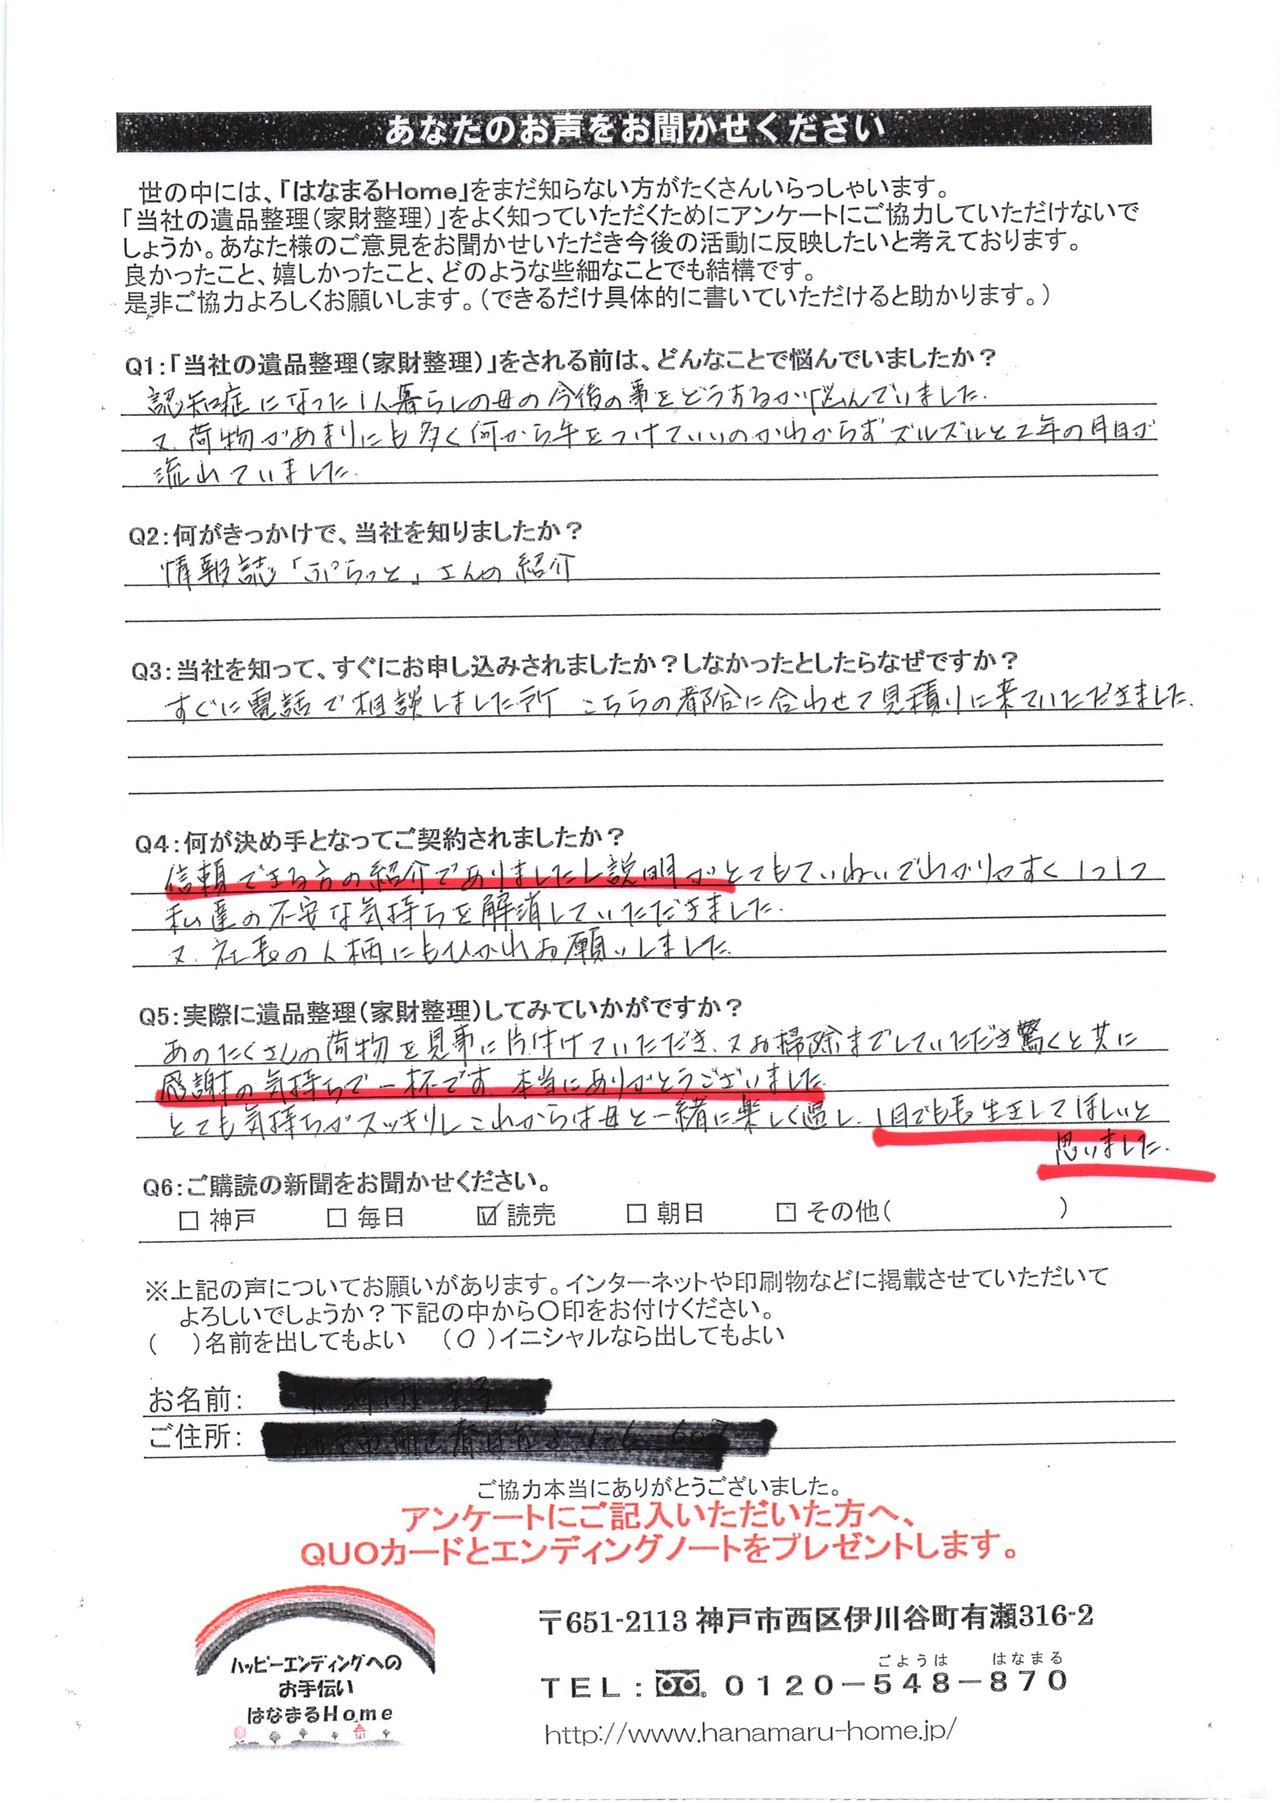 あなたのお声をお聞かせください
世の中には、「はなまるHome」をまだ知らない方がたくさんいらっしゃいます。
「当社の遺品整理(家財整理)」をよく知っていただくためにアンケートにご協力していただけないで
しょうか。あなた様のご意見をお聞かせいただき今後の活動に反映したいと考えております。
良かったこと、嬉しかったこと、どのような些細なことでも結構です。
是非ご協力よろしくお願いします。(できるだけ具体的に書いていただけると助かります。)
Q1:「当社の遺品整理(家財整理)」をされる前は、どんなことで悩んでいましたか?
認知症になった1人暮らしの母の今後の事をどうするか悩んでいました.
又、荷物があまりにも多く何から手をつけていいのかわからずズルズルと2年の月日が
流れていました.
Q2:何がきっかけで、当社を知りましたか?
情報誌「ぷらっと」さんの紹介
Q3:当社を知って、すぐにお申し込みされましたか?しなかったとしたらなぜですか?
すぐに電話で相談しました所 こちらの都合に合わせて見積りに来ていただきました.
Q4:何が決め手となってご契約されましたか?
信頼できる方の紹介でありましたし説明がとてもていねいでわかりやすく1つ1つ
私達の不安な気持ちを解消していただきました.
又、社長の人柄にもひかれお願いしました.
Q5:実際に遺品整理(家財整理)してみていかがですか?
あのたくさんの荷物を見事に片付けていただき、又お掃除までしていただき驚くと共に
感謝の気持ちで一杯です. 本当にありがとうございました.
とても気持ちがスッキリしこれからは母と一緒に楽しく過し、1日でも長生きしてほしいと
思いました.
Q6:ご購読の新聞をお聞かせください。
□ 神戸 □ 毎日 ☑ 読売 □ 朝日 □ その他( )
※上記の声についてお願いがあります。インターネットや印刷物などに掲載させていただいて
よろしいでしょうか?下記の中から〇印をお付けください。
( )名前を出してもよい (〇)イニシャルなら出してもよい
お名前:
ご住所:
ご協力本当にありがとうございました。
アンケートにご記入いただいた方へ、
QUOカードとエンディングノートをプレゼントします。
ハッピーエンディングへの
お手伝い
はなまるHome
〒651-2113 神戸市西区伊川谷町有瀬316-2
ごようは はなまる
TEL: 0120-548-870
http://www.hanamaru-home.jp/